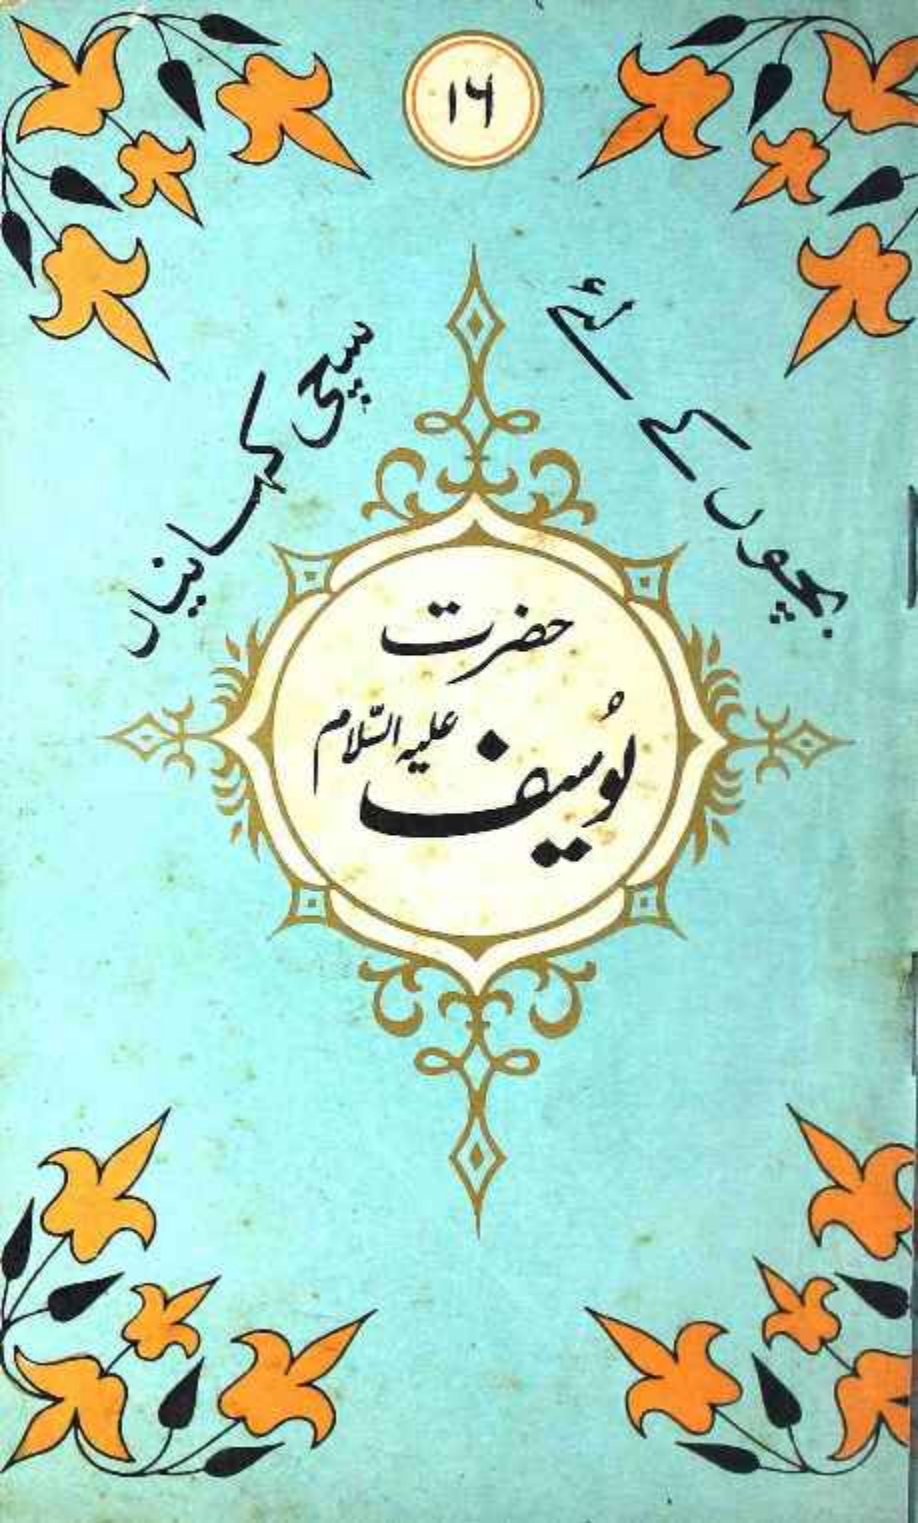 ۱۶
بچوں کے لئے
سچی کہانیاں
حضرت
یُوسف علیہ السّلام